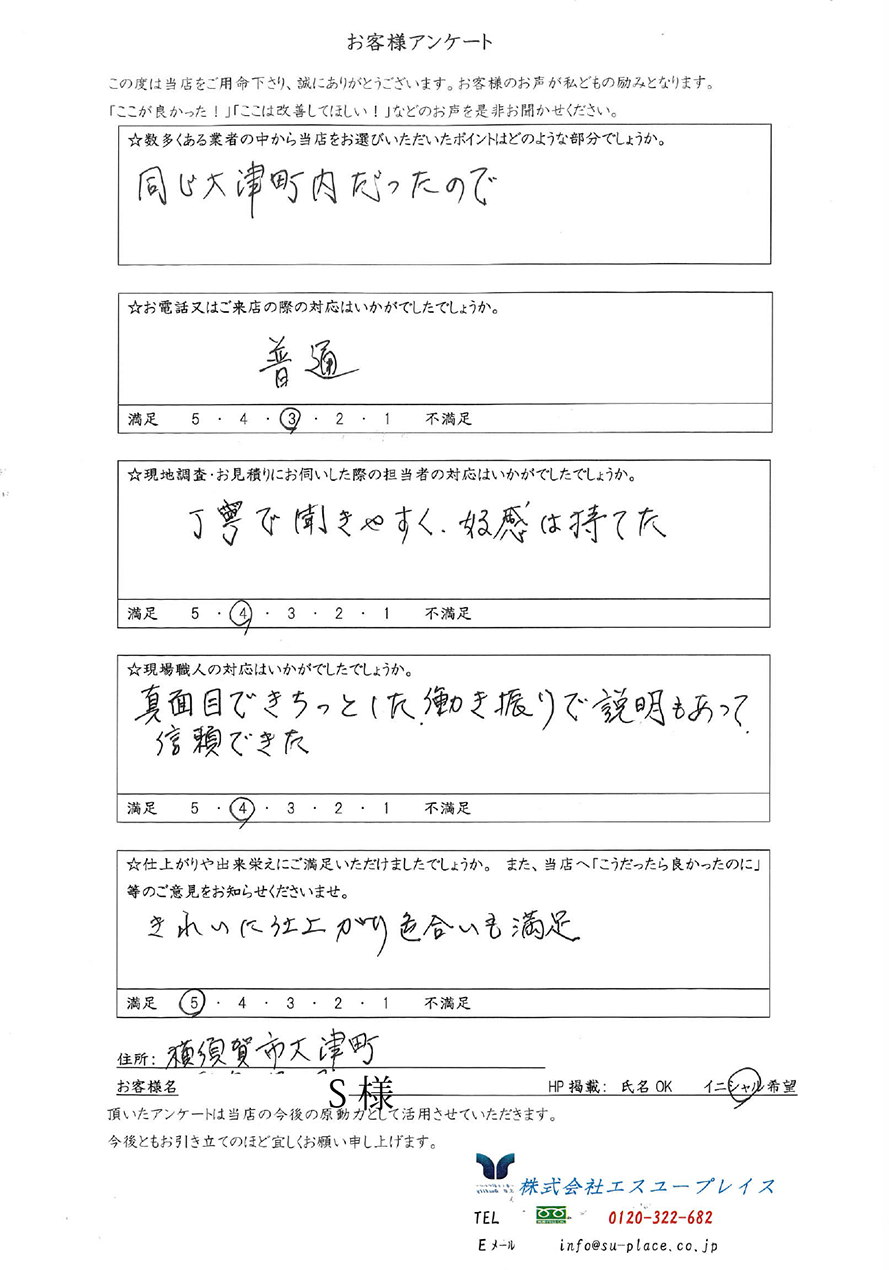 お客様アンケート
この度は当店をご用命下さり、誠にありがとうございます。お客様のお声が私どもの励みとなります。
「ここが良かった！」「ここは改善してほしい！」などのお声を是非お聞かせください。
☆数多くある業者の中から当店をお選びいただいたポイントはどのような部分でしょうか。
同じ大津町内だったので
☆お電話又はご来店の際の対応はいかがでしたでしょうか。
普通
満足 5 ・ 4 ・ 3 ・ 2 ・ 1 不満足
☆現地調査・お見積りにお伺いした際の担当者の対応はいかがでしたでしょうか。
丁寧で聞きやすく、好感は持てた
満足 5 ・ 4 ・ 3 ・ 2 ・ 1 不満足
☆現場職人の対応はいかがでしたでしょうか。
真面目できちっとした働き振りで説明もあって
信頼できた
満足 5 ・ 4 ・ 3 ・ 2 ・ 1 不満足
☆仕上がりや出来栄えにご満足いただけましたでしょうか。 また、当店へ「こうだったら良かったのに」
等のご意見をお知らせくださいませ。
きれいに仕上がり色合いも満足
満足 5 ・ 4 ・ 3 ・ 2 ・ 1 不満足
住所： 横須賀市大津町
お客様名 S 様 HP 掲載： 氏名 OK イニシャル希望
頂いたアンケートは当店の今後の原動力として活用させていただきます。
今後ともお引き立てのほど宜しくお願い申し上げます。
株式会社エスユープレイス
TEL 0120-322-682
Eメール info@su-place.co.jp